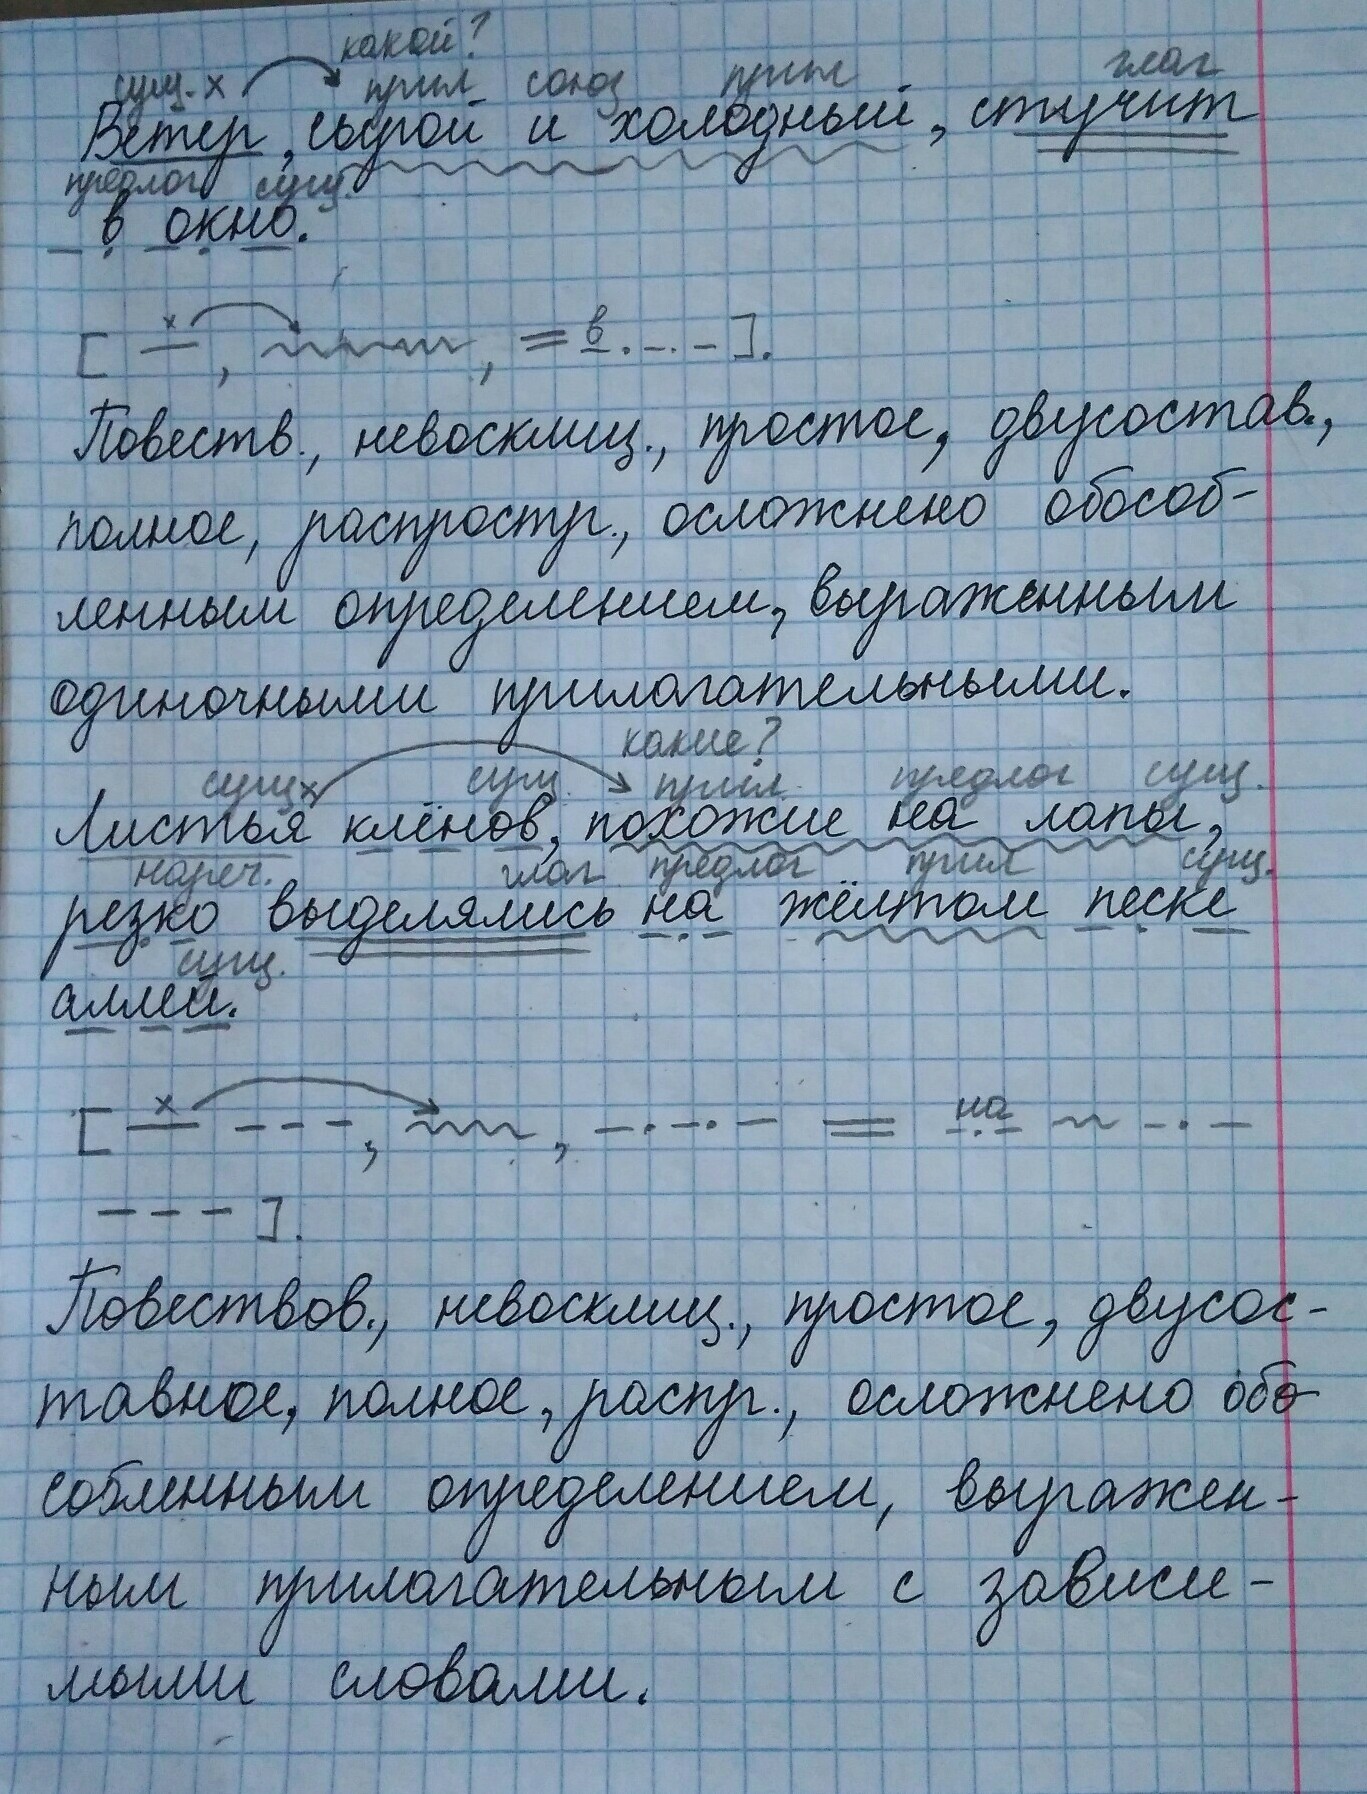 какой?
сущ. х прил. союз прил глаг
Ветер, сырой и холодный, стучит
предлог сущ.
в окно.
[ х , , = в ].
Повеств., невосклиц., простое, двусостав.,
полное, распростр., осложнено обособ-
ленным определением, выраженным
одиночными прилагательными.
какие?
сущ х сущ. прил. предлог сущ.
Листья клёнов, похожие на лапы,
нареч. глаг предлог прил сущ.
резко выделялись на жёлтом песке
сущ.
аллей.
[ х , , = на
].
Повествов., невосклиц., простое, двусос-
тавное, полное, распр., осложнено обо
собленным определением, выражен-
ным прилагательным с зависи-
мыми словами.